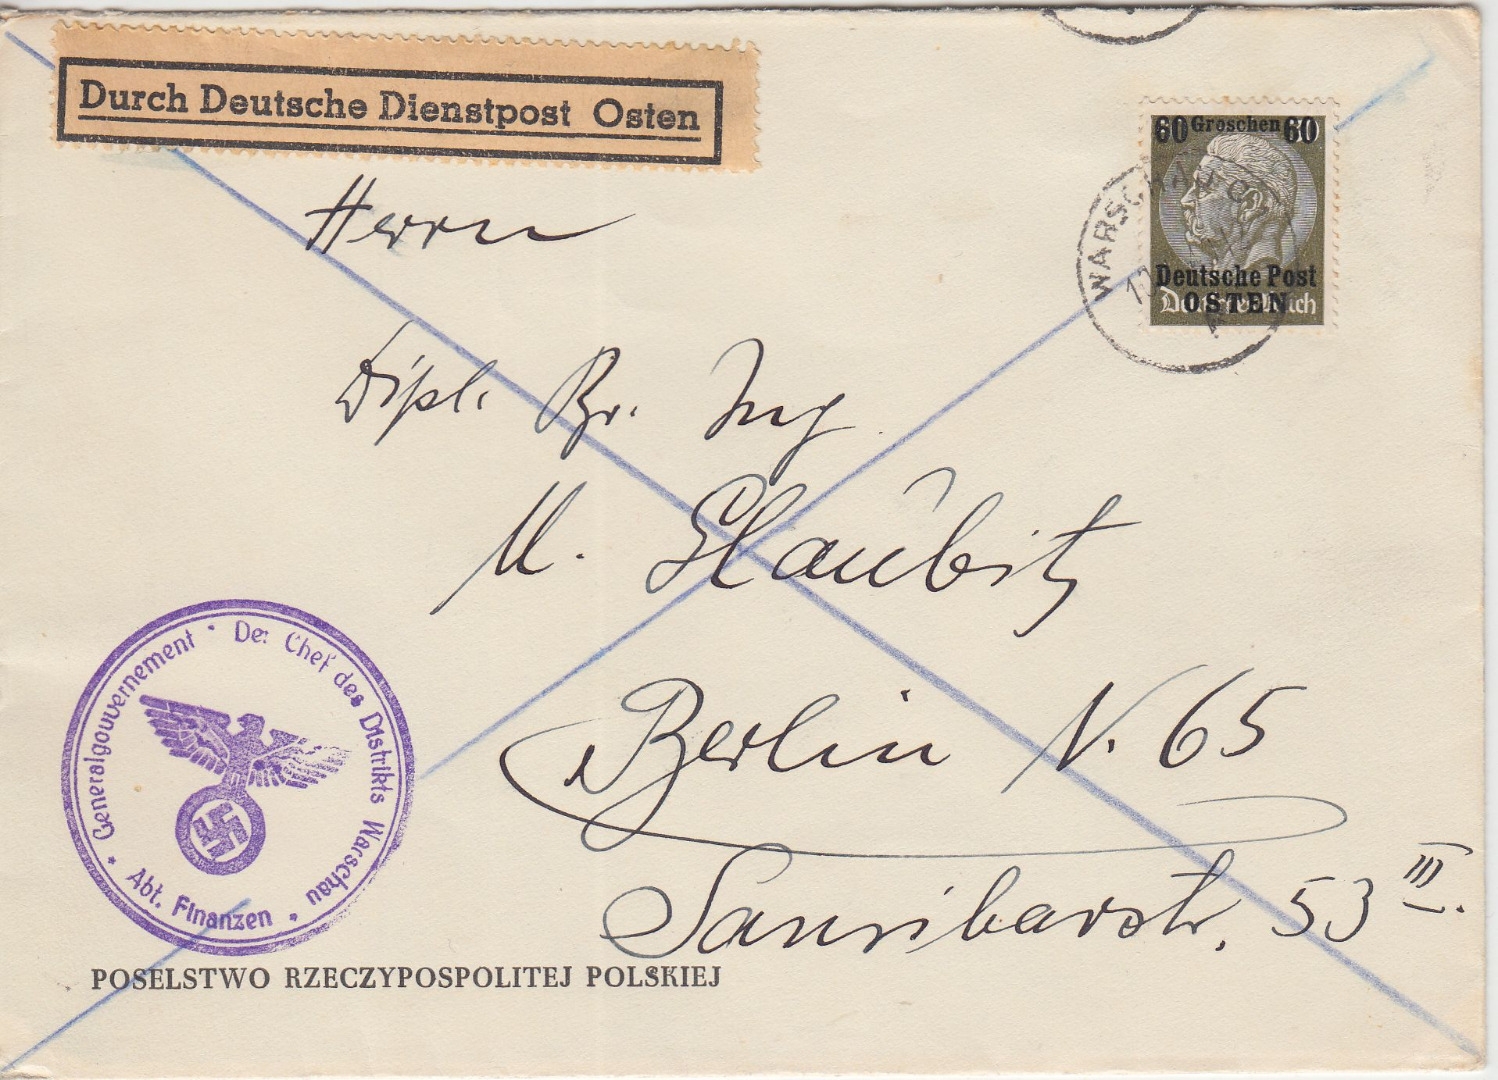 Durch Deutsche Dienstpost Osten
60 Groschen 60
Deutsche Post
OSTEN
WARSCHAU C
Herrn
Dipl. Br. Ing.
M. Glaubitz
Berlin N. 65
Sansibarstr. 53 III.
Generalgouvernement · Der Chef des Distrikts Warschau
Abt. Finanzen
POSELSTWO RZECZYPOSPOLITEJ POLSKIEJ